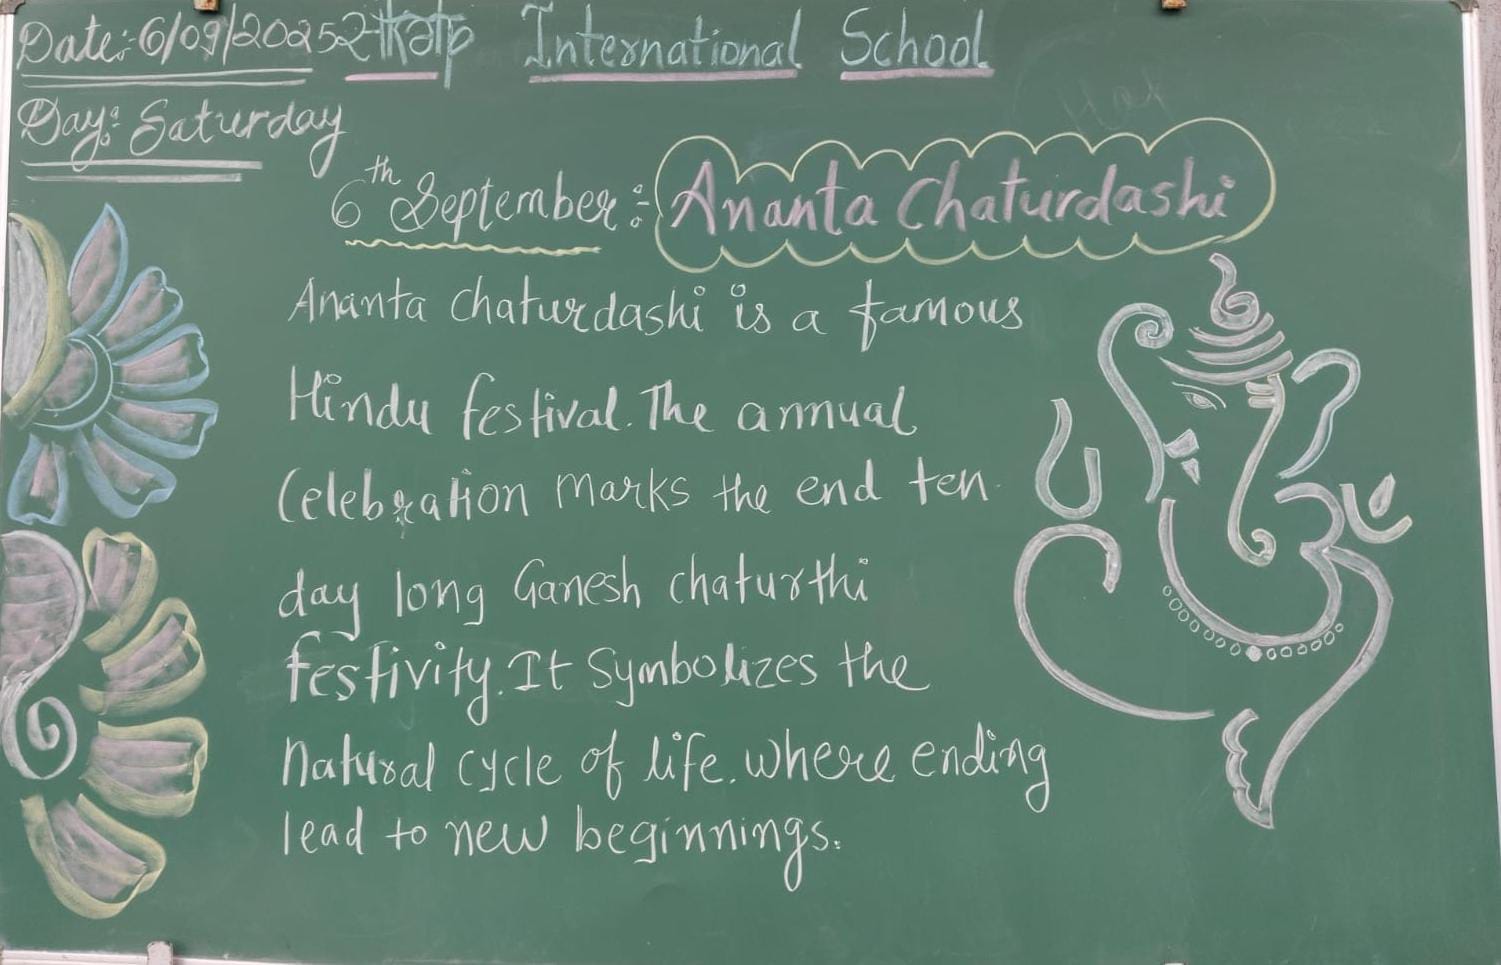 Date:- 6/09/2025 International School
Day:- Saturday
6th September:- Ananta Chaturdashi
Ananta Chaturdashi is a famous
Hindu festival. The annual
Celebration marks the end ten
day long Ganesh chaturthi
festivity. It Symbolizes the
Natural cycle of life. where ending
lead to new beginnings.